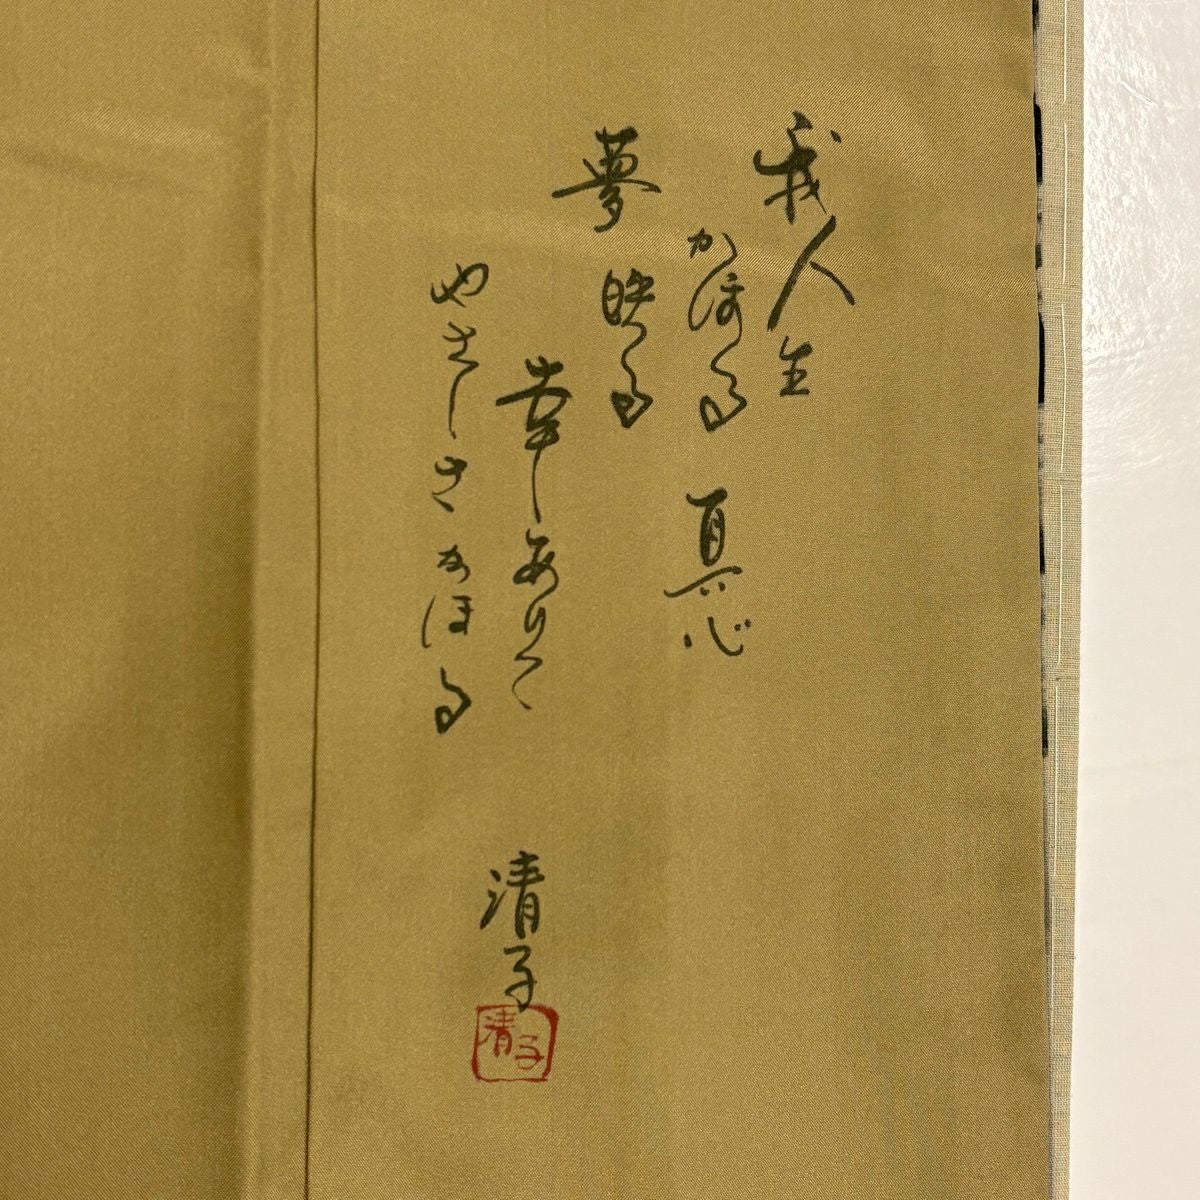 我人生
かほる真心
夢映る
幸しありて
やさしさかほる
清子
清子